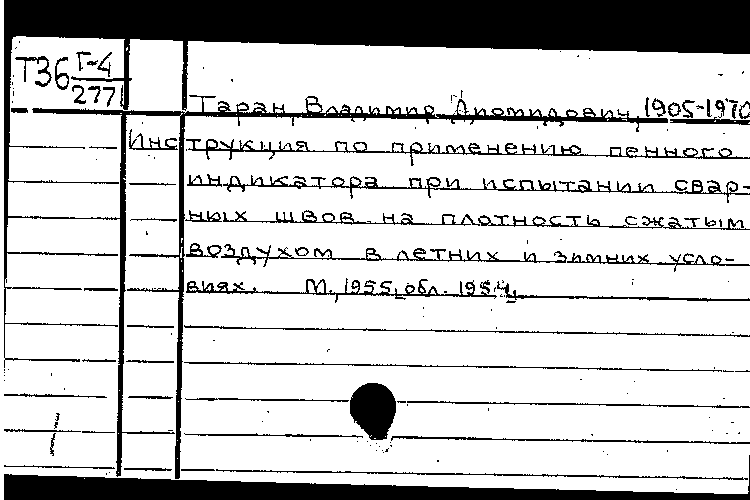 Т36 Г-4
277
Таран, Владимир Диомидович, 1905-1970
Инструкция по применению пенного
индикатора при испытании свар-
ных швов на плотность сжатым
воздухом в летних и зимних усло-
виях. М., 1955, обл. 1954,